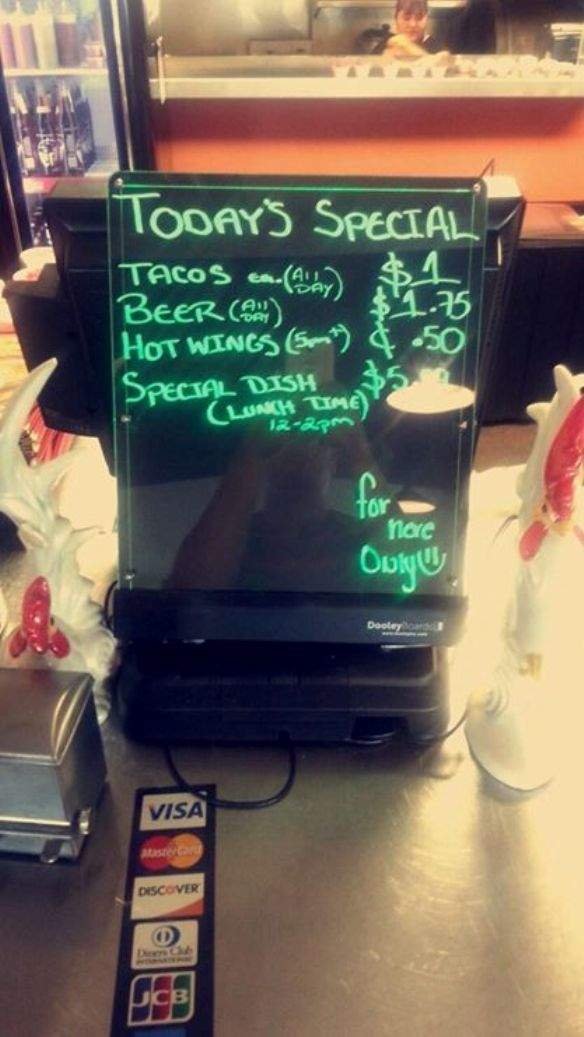 TODAY'S SPECIAL
TACOS ea. (All DAY) $1
BEER (All DAY) $1.75
HOT WINGS (5pm+) ¢ .50
SPECIAL DISH
(LUNCH TIME)
12-2pm
for
here
Only!!!
DooleyBoards
VISA
MasterCard
DISCOVER
Diners Club
INTERNATIONAL
JCB